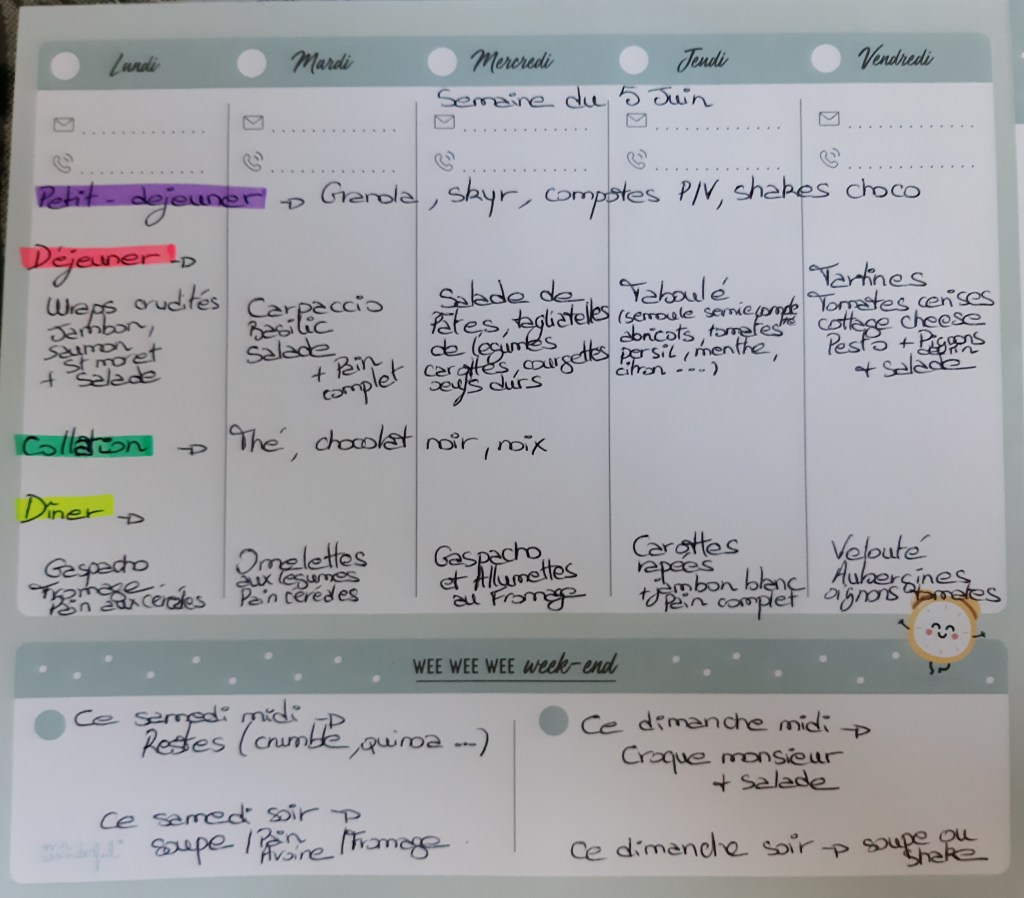 Lundi Mardi Mercredi Jeudi Vendredi
Semaine du 5 Juin
Petit-dejeuner → Granola, skyr, compotes P/V, shakes choco
Déjeuner →
Wraps crudités
Jambon,
saumon
St moret
+ Salade
Carpaccio
Basilic
Salade
+ Pain
complet
Salade de
Pâtes, tagliatelles
de légumes
carottes, courgettes
oeufs durs
Taboulé
(semoule semie complète
abricots, tomates
persil, menthe,
citron ----)
Tartines
Tomates cerises
cottage cheese
Pesto + Pignons
de pin
+ Salade
Collation → Thé, chocolat noir, noix
Dîner →
Gaspacho
Fromage
Pain aux céréales
Omelettes
aux légumes
Pain cérédes
Gaspacho
et Allumettes
au Fromage
Carottes
rapées
+ Jambon blanc
Pain complet
Velouté
Aubergines
oignons tomates
WEE WEE WEE week-end
Ce samedi midi →
Restes (crumble, quinoa ---)
Ce samedi soir →
soupe / Pain Avoine / Fromage
Ce dimanche midi →
Croque monsieur
+ Salade
Ce dimanche soir → soupe ou
Shake